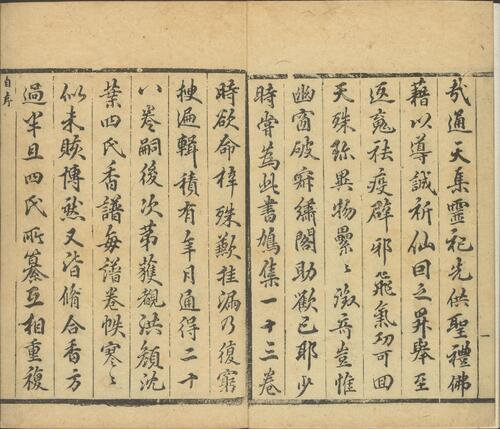 哉通天集靈祀先供聖禮佛
藉以導誠祈仙因之昇舉至
返魂祛疫辟邪飛氣功可回
天殊珎異物纍々徵奇豈惟
幽窗破寂繡閣助歡已耶少
時嘗為此書鳩集一十三卷
一
時欲命梓殊歉挂漏乃復窮
搜遍輯積有年月通得二十
八卷嗣後次第獲覩洪顏沈
葉四氏香譜每譜卷帙寥々
似未賅博然又皆脩合香方
過半且四氏所纂互相重複
自序